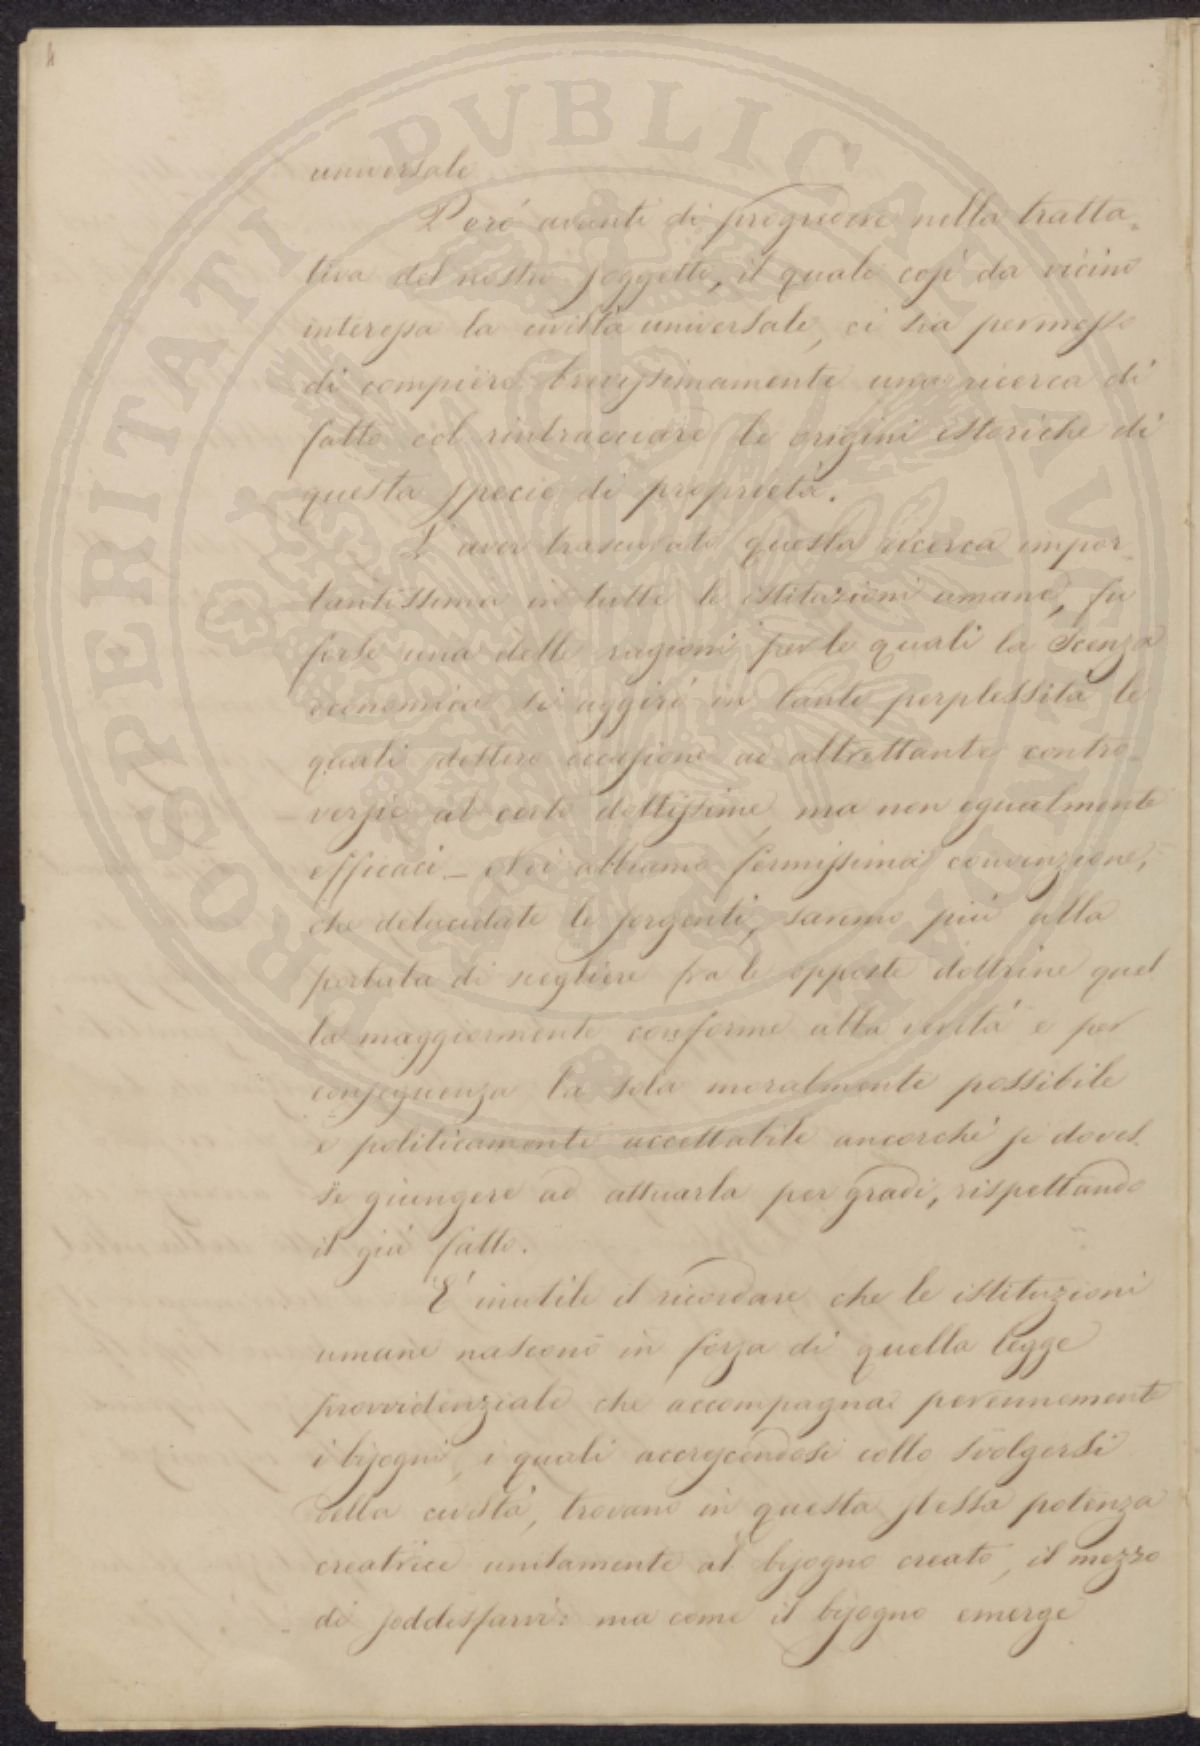 4
universale
Però avanti di progredire nella tratta-
tiva del nostro soggetto, il quale così da vicino
interessa la civiltà universale, ci sia permesso
di compiere brevissimamente una ricerca di
fatto col rintracciare le origini istoriche di
questa specie di proprietà.
L'aver trascurato questa ricerca impor-
tantissima in tutte le istituzioni umane, fu
forse una delle ragioni per le quali la Scenza
economica si aggirò in tante perplessità le
quali dettero occasione ad altrettante contro-
versie al certo dottissime, ma non egualmente
efficaci – Noi abbiamo fermissima convinzione,
che delucidate le sorgenti, saremo più alla
portata di scegliere fra le opposte dottrine quel-
la maggiormente conforme alla verità e per
conseguenza la sola moralmente possibile
e politicamente accettabile ancorché si doves-
se giungere ad attuarla per gradi, rispettando
il già fatto.
E' inutile il ricordare che le istituzioni
umane nascono in forza di quella legge
provvidenziale che accompagna perennemente
i bisogni, i quali accrescendosi collo svolgersi
della civiltà, trovano in questa stessa potenza
creatrice unitamente al bisogno creato, il mezzo
di soddisfarvi: ma come il bisogno emerge
PROSPERITATI PVBLICAE AVGENDAE